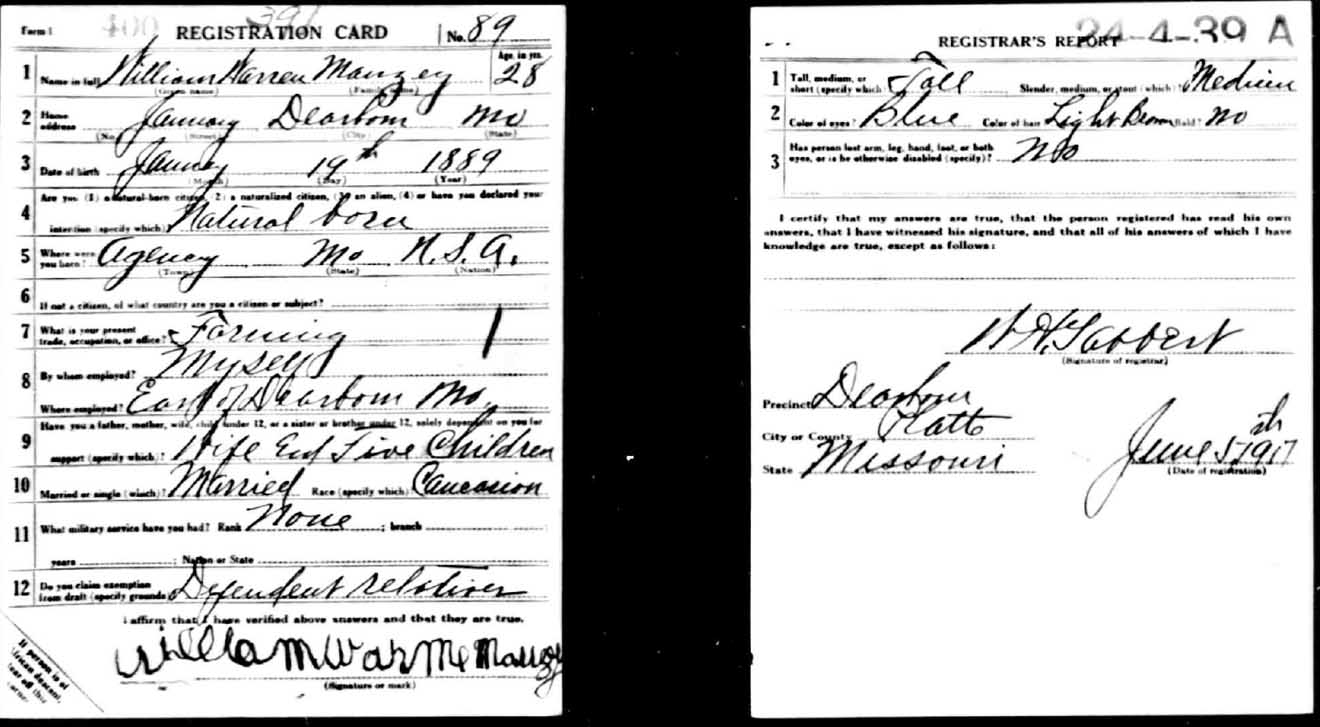 Form 1 400 391 REGISTRATION CARD No. 89
1 Name in full William Warren Mauzey Age, in yrs. 28
(Given name) (Family name)
2 Home address January Dearborn Mo
(No.) (Street) (City) (State)
3 Date of birth January 19th 1889
(Month) (Day) (Year)
4 Are you (1) a natural-born citizen, (2) a naturalized citizen, (3) an alien, (4) or have you declared your
intention (specify which)? Natural born
5 Where were you born? Agency Mo U.S.A.
(Town) (State) (Nation)
6 If not a citizen, of what country are you a citizen or subject?
7 What is your present trade, occupation, or office? Farming 1
8 By whom employed? Myself
Where employed? East of Dearborn Mo.
9 Have you a father, mother, wife, child under 12, or a sister or brother under 12, solely dependent on you for
support (specify which)? Wife End Five Children
10 Married or single (which)? Married Race (specify which)? Caucasion
11 What military service have you had? Rank None ; branch
years ; Nation or State
12 Do you claim exemption from draft (specify grounds)? Dependent relatives
I affirm that I have verified above answers and that they are true.
William Mauzey
(Signature or mark)
If person is of African descent, tear off this corner.
24-4-39 A
REGISTRAR'S REPORT
1 Tall, medium, or short (specify which)? Tall Slender, medium, or stout (which)? Medium
2 Color of eyes? Blue Color of hair? Light Brown Bald? No
3 Has person lost arm, leg, hand, foot, or both eyes, or is he otherwise disabled (specify)? No
I certify that my answers are true, that the person registered has read his own
answers, that I have witnessed his signature, and that all of his answers of which I have
knowledge are true, except as follows:
(Signature of registrar)
Precinct Dearborn
City or County Platte
State Missouri June 5th 1917
(Date of registration)